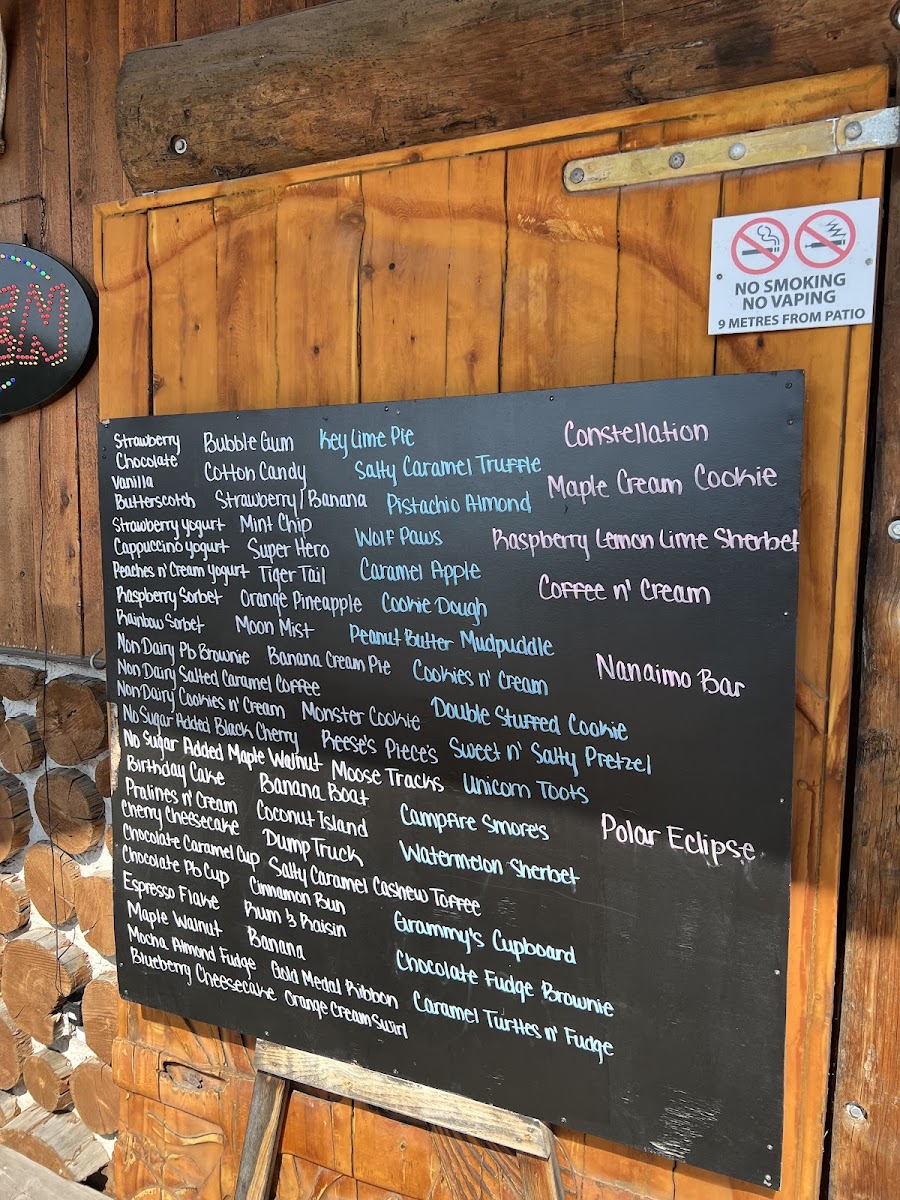 NO SMOKING
NO VAPING
9 METRES FROM PATIO
Strawberry
Chocolate
Vanilla
Butterscotch
Strawberry yogurt
Cappuccino yogurt
Peaches n' Cream yogurt
Raspberry Sorbet
Rainbow Sorbet
Non Dairy Pb Brownie
Non Dairy Salted Caramel Coffee
Non Dairy Cookies n' Cream
No Sugar Added Black Cherry
No Sugar Added Maple Walnut
Birthday Cake
Pralines n' Cream
Cherry Cheesecake
Chocolate Caramel Cup
Chocolate Pb Cup
Espresso Flake
Maple Walnut
Mocha Almond Fudge
Blueberry Cheesecake
Bubble Gum
Cotton Candy
Strawberry/Banana
Mint Chip
Super Hero
Tiger Tail
Orange Pineapple
Moon Mist
Banana Cream Pie
Monster Cookie
Reese's Piece's
Moose Tracks
Banana Boat
Coconut Island
Dump Truck
Salty Caramel Cashew Toffee
Cinnamon Bun
Rum & Raisin
Banana
Gold Medal Ribbon
Orange Cream Swirl
Key Lime Pie
Salty Caramel Truffle
Pistachio Almond
Wolf Paws
Caramel Apple
Cookie Dough
Peanut Butter Mudpuddle
Cookies n' Cream
Double Stuffed Cookie
Sweet n' Salty Pretzel
Unicorn Toots
Campfire Smore's
Watermelon Sherbet
Grammy's Cupboard
Chocolate Fudge Brownie
Caramel Turtles n' Fudge
Constellation
Maple Cream Cookie
Raspberry Lemon Lime Sherbet
Coffee n' Cream
Nanaimo Bar
Polar Eclipse